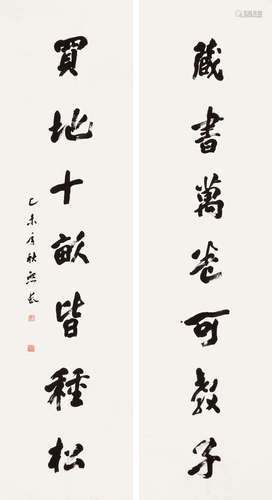 藏書萬卷可教子
買地十畝皆種松
乙未年秋